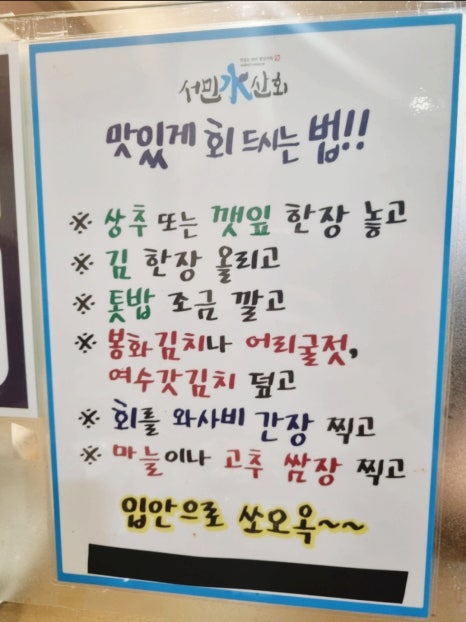 서민水산회
맛있게 회 드시는 법!!
※ 상추 또는 깻잎 한장 놓고
※ 김 한장 올리고
※ 톳밥 조금 깔고
※ 봉화김치나 어리굴젓,
여수갓김치 덮고
※ 회를 와사비 간장 찍고
※ 마늘이나 고추 쌈장 찍고
입안으로 쏘오옥~~